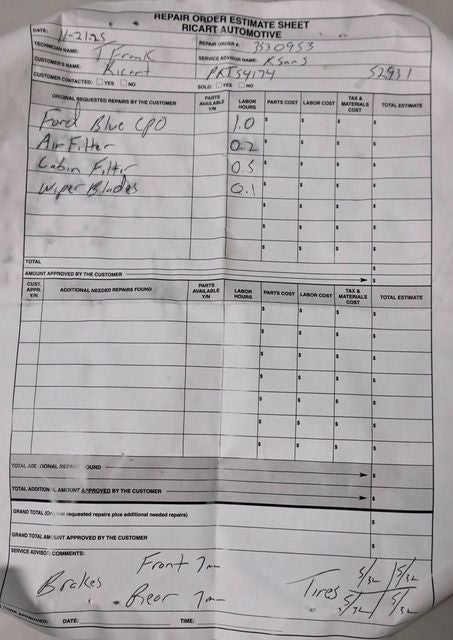 REPAIR ORDER ESTIMATE SHEET
RICART AUTOMOTIVE
DATE: 11-21-25
REPAIR ORDER #: 3530953
TECHNICIAN NAME: T Frank
SERVICE ADVISOR NAME: KSans
CUSTOMER'S NAME: Ricart
PRT54174 52931
CUSTOMER CONTACTED: YES NO SOLD: YES NO
ORIGINAL REQUESTED REPAIRS BY THE CUSTOMER PARTS AVAILABLE Y/N LABOR HOURS PARTS COST LABOR COST TAX & MATERIALS COST TOTAL ESTIMATE
Ford Blue CPO 1.0 $ $ $ $
Air Filter 0.2 $ $ $ $
Cabin Filtr 0.5 $ $ $ $
Wiper Blades 0.1 $ $ $ $
$ $ $ $
$ $ $ $
TOTAL $
AMOUNT APPROVED BY THE CUSTOMER $
CUST. APPR. Y/N ADDITIONAL NEEDED REPAIRS FOUND PARTS AVAILABLE Y/N LABOR HOURS PARTS COST LABOR COST TAX & MATERIALS COST TOTAL ESTIMATE
$ $ $ $
$ $ $ $
$ $ $ $
$ $ $ $
$ $ $ $
$ $ $ $
$ $ $ $
TOTAL ADDITIONAL REPAIRS FOUND $
TOTAL ADDITIONAL AMOUNT APPROVED BY THE CUSTOMER $
GRAND TOTAL (Original requested repairs plus additional needed repairs) $
GRAND TOTAL AMOUNT APPROVED BY THE CUSTOMER $
SERVICE ADVISOR COMMENTS:
Front 7m
Brakes
Rear 7m
Tires 5/32 5/32
5/32 5/32
APPROVED: DATE: TIME: